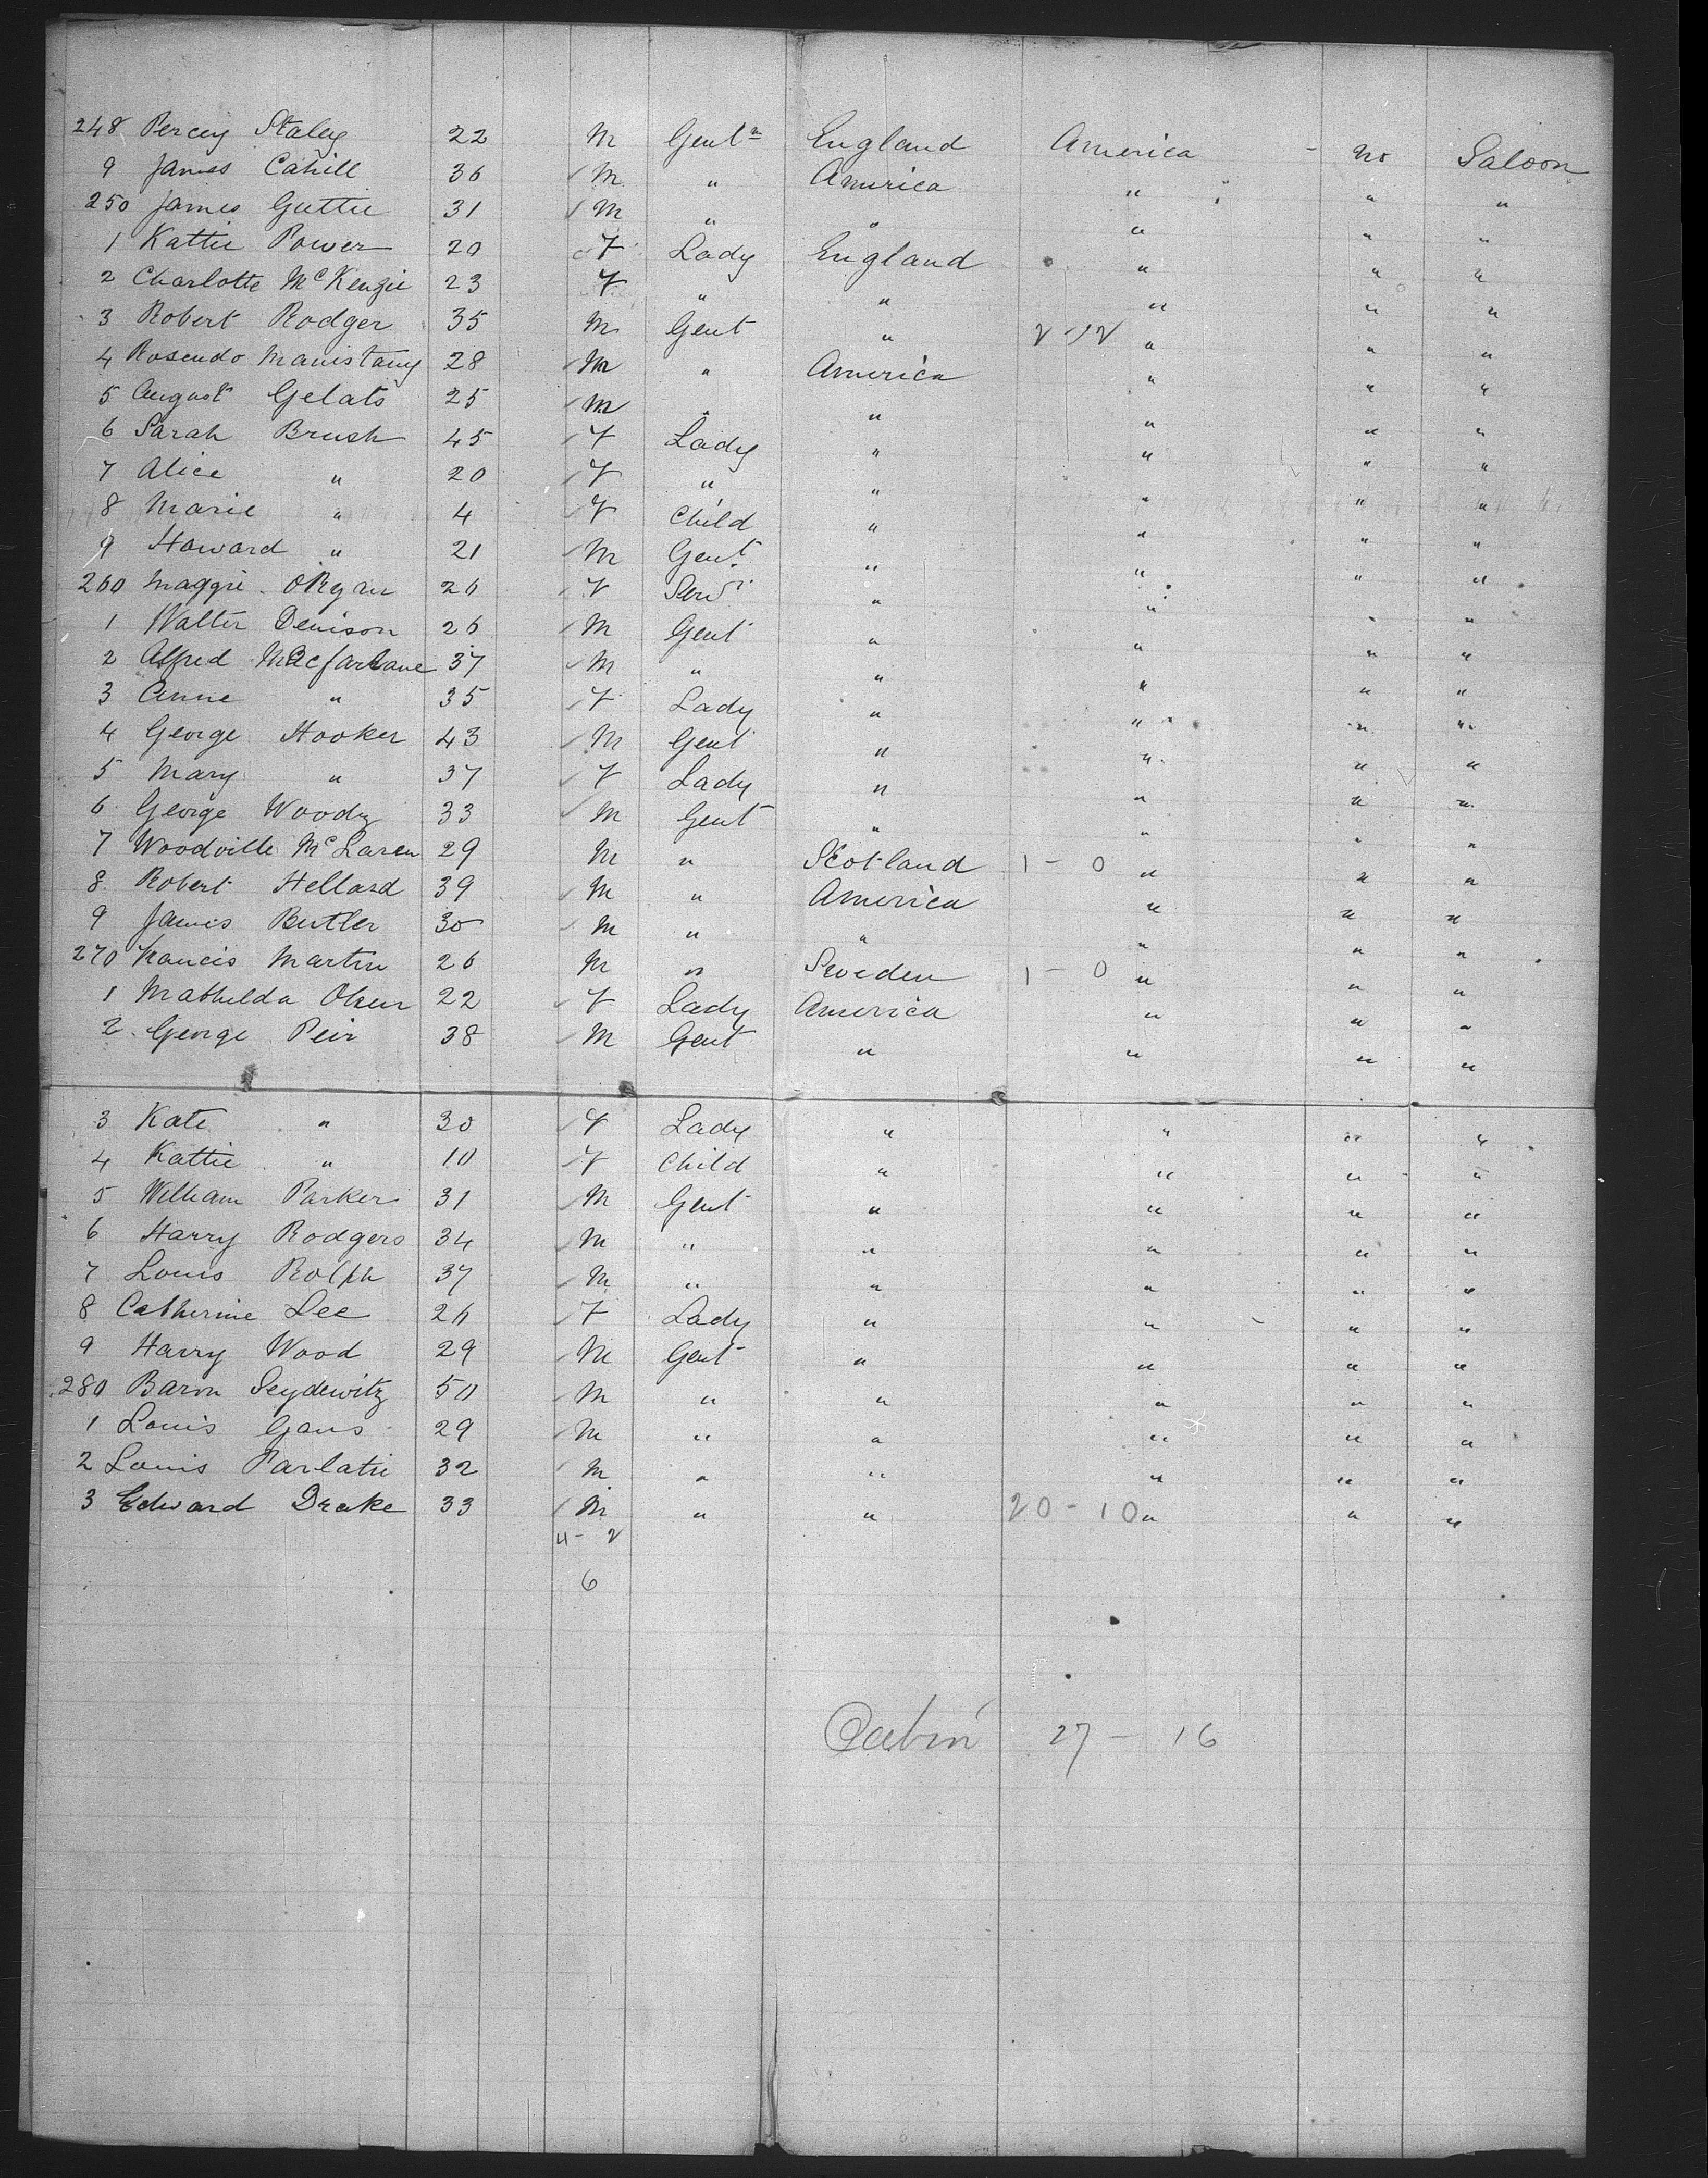 248 Percey Staley 22 M Gentn England America - no Saloon
9 James Cahill 36 M " America " " "
250 James Guttie 31 M " " " " "
1 Kattie Power 20 F Lady England " " "
2 Charlotte McKenzie 23 F " " " " "
3 Robert Rodger 35 M Gent " 2-2 " " "
4 Rosendo Manistany 28 M " America " " "
5 August Gelats 25 M " " " " "
6 Sarah Brush 45 F Lady " " " "
7 Alice " 20 F " " " " "
8 Marie " 4 F Child " " " "
9 Howard " 21 M Gent " " " "
260 Maggie 26 F Serv " " " "
1 Walter Denison 26 M Gent " " " "
2 Alfred Macfarlane 37 M " " " " "
3 Anne " 35 F Lady " " " "
4 George Hooker 43 M Gent " " " "
5 Mary " 37 F Lady " " " "
6 George Woody 33 M Gent " " " "
7 Woodville McLaren 29 M " Scotland 1-0 " " "
8 Robert Hellard 39 M " America " " "
9 James Butler 30 M " " " " "
270 Francis Martin 26 M " Sweden 1-0 " " "
1 Mathilda Olsen 22 F Lady America " " "
2 George Peir 38 M Gent " " " "
3 Kate " 30 F Lady " " " "
4 Kattie " 10 F Child " " " "
5 William Parker 31 M Gent " " " "
6 Harry Rodgers 34 M " " " " "
7 Louis Rolph 37 M " " " " "
8 Catherine Lee 26 F Lady " " " "
9 Harry Wood 29 M Gent " " " "
280 Baron Seydewitz 50 M " " " " "
1 Louis Gans 29 M " " " " "
2 Louis Parlatie 32 M " " " " "
3 Edward Drake 33 M " " 20-10 " " "
4-2
6
Cabin 27-16